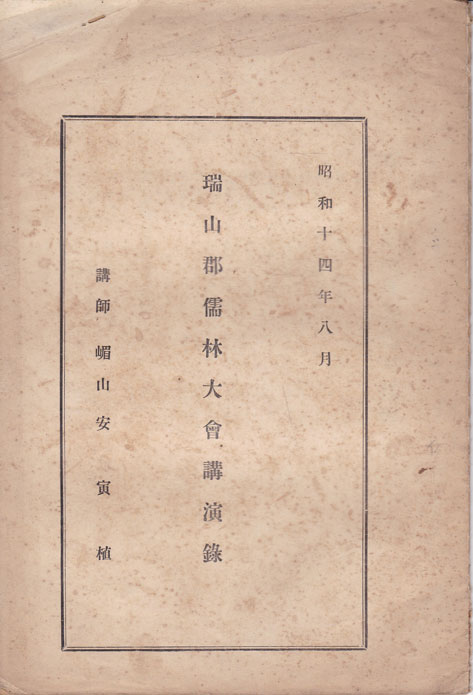 昭和十四年八月
瑞山郡儒林大會講演錄
講師 嵋山安寅植